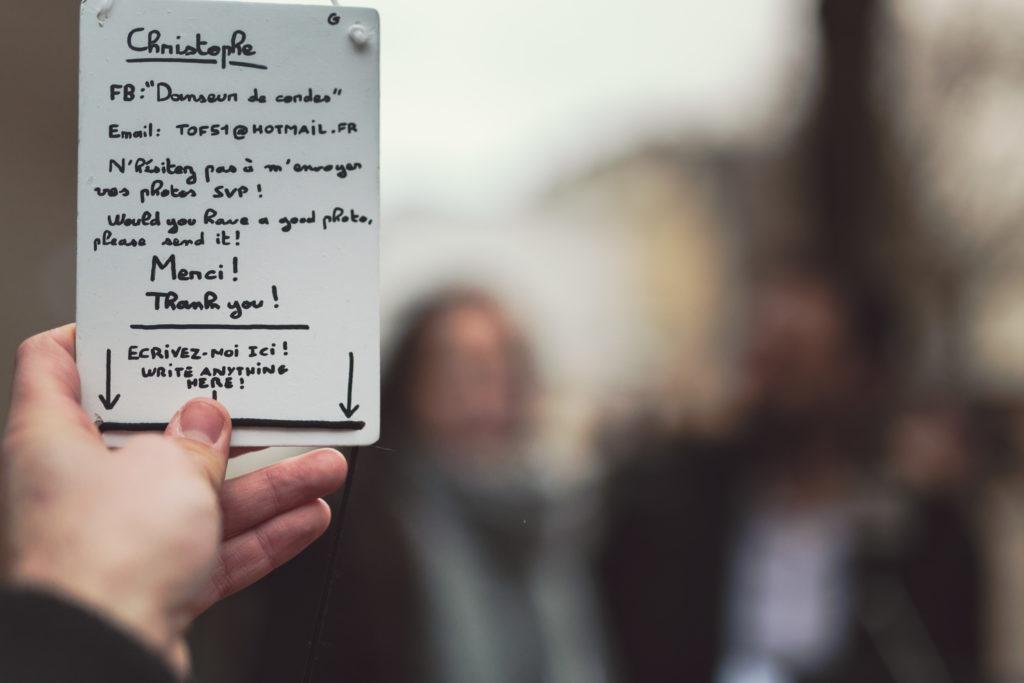 G
Christophe
FB: "Danseur de cordes"
Email: TOF51@HOTMAIL.FR
N'hésitez pas à m'envoyer
vos photos SVP !
Would you have a good photo,
please send it!
Merci !
Thank you !
ECRIVEZ-MOI ICI !
WRITE ANYTHING
HERE !